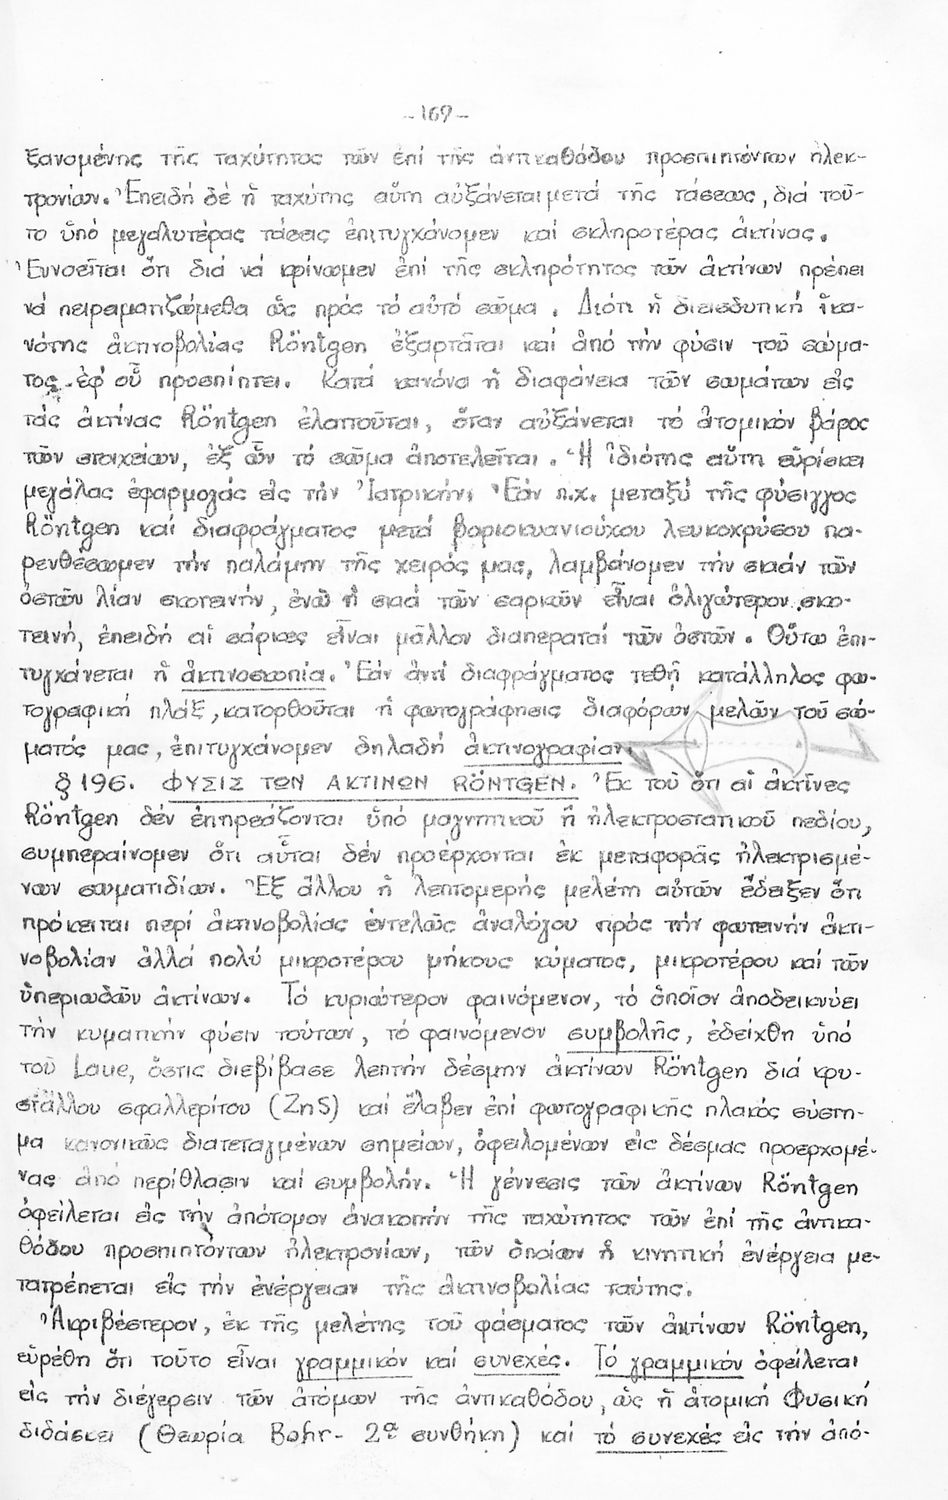 -169-
ξανομένης τῆς ταχύτητος τῶν ἐπί τῆς ἀντικαθόδου προσπιπτόντων ἠλεκ-
τρονίων. Ἐπειδή δέ ἡ ταχύτης αὕτη αὐξάνεται μετά τῆς τάσεως, διά τοῦ-
το ὑπό μεγαλυτέρας τάσεις ἐπιτυγχάνομεν καί σκληροτέρας ἀκτίνας.
Ἐννοεῖται ὅτι διά νά κρίνωμεν ἐπί τῆς σκληρότητος τῶν ἀκτίνων πρέπει
νά πειραματιζώμεθα ὡς πρός τό αὐτό σῶμα. Διότι ἡ διεισδυτική ἱκα-
νότης ἀκτινοβολίας Röntgen ἐξαρτᾶται καί ἀπό τήν φύσιν τοῦ σώμα-
τος ἐφ' οὗ προσπίπτει. Κατά κανόνα ἡ διαφάνεια τῶν σωμάτων εἰς
τάς ἀκτίνας Röntgen ἐλαττοῦται, ὅταν αὐξάνεται τό ἀτομικόν βάρος
τῶν στοιχείων, ἐξ ὧν τό σῶμα ἀποτελεῖται. Ἡ ἰδιότης αὕτη εὑρίσκει
μεγάλας ἐφαρμογάς εἰς τήν Ἰατρικήν. Ἐάν π.χ. μεταξύ τῆς φύσιγγος
Röntgen καί διαφράγματος μετά βαριοκυανιούχου λευκοχρύσου πα-
ρενθέσωμεν τήν παλάμην τῆς χειρός μας, λαμβάνομεν τήν σκιάν τῶν
ὀστῶν λίαν σκοτεινήν, ἐνῶ ἡ σκιά τῶν σαρκῶν εἶναι ὀλιγώτερον σκο-
τεινή, ἐπειδή αἱ σάρκες εἶναι μᾶλλον διαπεραταί τῶν ὀστῶν. Οὕτω ἐπι-
τυγχάνεται ἡ ἀκτινοσκοπία. Ἐάν ἀντί διαφράγματος τεθῇ κατάλληλος φω-
τογραφική πλάξ, κατορθοῦται ἡ φωτογράφησις διαφόρων μελῶν τοῦ σώ-
ματός μας, ἐπιτυγχάνομεν δηλαδή ἀκτινογραφίαν.
§ 196. ΦΥΣΙΣ ΤΩΝ ΑΚΤΙΝΩΝ RÖNTGEN. Ἐκ τοῦ ὅτι αἱ ἀκτῖνες
Röntgen δέν ἐπηρεάζονται ὑπό μαγνητικοῦ ἤ ἠλεκτροστατικοῦ πεδίου,
συμπεραίνομεν ὅτι αὗται δέν προέρχονται ἐκ μεταφορᾶς ἠλεκτρισμέ-
νων σωματιδίων. Ἐξ ἄλλου ἡ λεπτομερής μελέτη αὐτῶν ἔδειξεν ὅτι
πρόκειται περί ἀκτινοβολίας ἐντελῶς ἀναλόγου πρός τήν φωτεινήν ἀκτι-
νοβολίαν ἀλλά πολύ μικροτέρου μήκους κύματος, μικροτέρου καί τῶν
ὑπεριωδῶν ἀκτίνων. Τό κυριώτερον φαινόμενον, τό ὁποῖον ἀποδεικνύει
τήν κυματικήν φύσιν τούτων, τό φαινόμενον συμβολῆς, ἐδείχθη ὑπό
τοῦ Laue, ὅστις διεβίβασε λεπτήν δέσμην ἀκτίνων Röntgen διά κρυ-
στάλλου σφαλλερίτου (ZnS) καί ἔλαβεν ἐπί φωτογραφικῆς πλακός σύστη-
μα κανονικῶς διατεταγμένων σημείων, ὀφειλομένων εἰς δέσμας προερχομέ-
νας ἀπό περίθλασιν καί συμβολήν. Ἡ γέννεσις τῶν ἀκτίνων Röntgen
ὀφείλεται εἰς τήν ἀπότομον ἀνακοπήν τῆς ταχύτητος τῶν ἐπί τῆς ἀντικα-
θόδου προσπιπτόντων ἠλεκτρονίων, τῶν ὁποίων ἡ κινητική ἐνέργεια με-
τατρέπεται εἰς τήν ἐνέργειαν τῆς ἀκτινοβολίας ταύτης.
Ἀκριβέστερον, ἐκ τῆς μελέτης τοῦ φάσματος τῶν ἀκτίνων Röntgen,
εὑρέθη ὅτι τοῦτο εἶναι γραμμικόν καί συνεχές. Τό γραμμικόν ὀφείλεται
εἰς τήν διέγερσιν τῶν ἀτόμων τῆς ἀντικαθόδου, ὡς ἡ ἀτομική Φυσική
διδάσκει (Θεωρία Bohr- 2ᵃ συνθήκη) καί τό συνεχές εἰς τήν ἀπό-